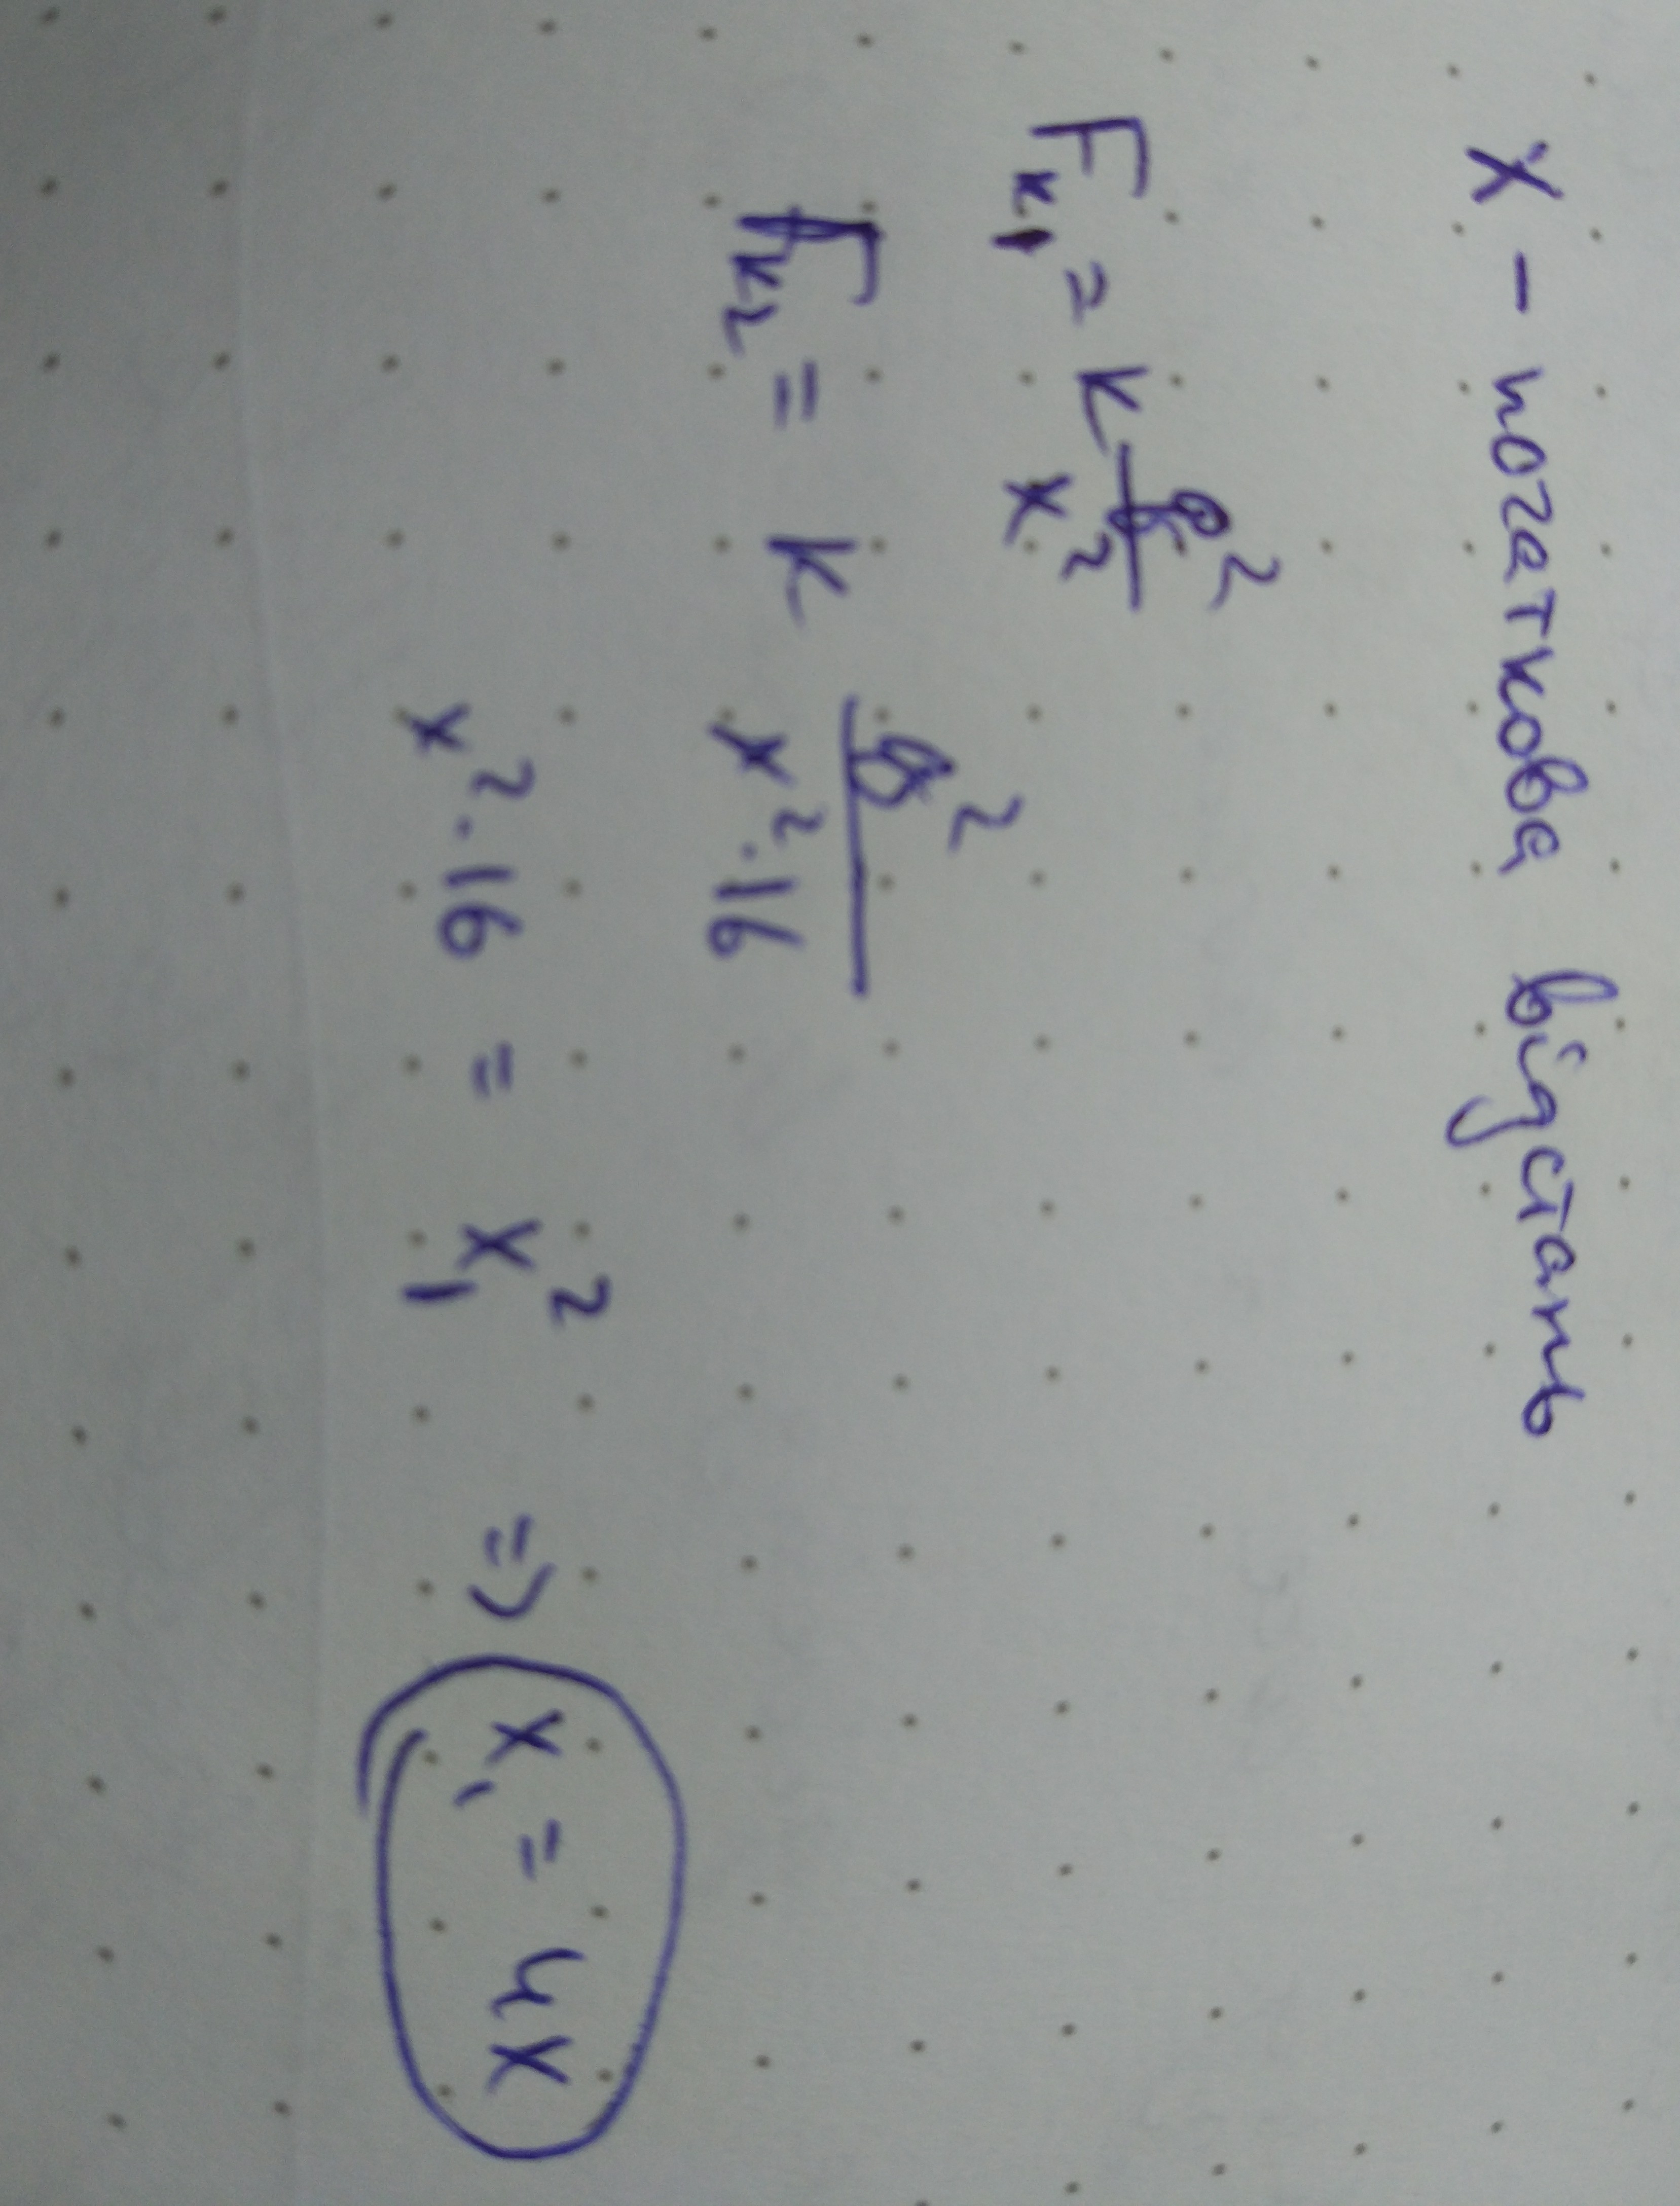 x - початкова відстань
Fк₁ = k q²/x²
Fк₂ = k q²/x²·16
x²·16 = x₁² => x₁ = 4x